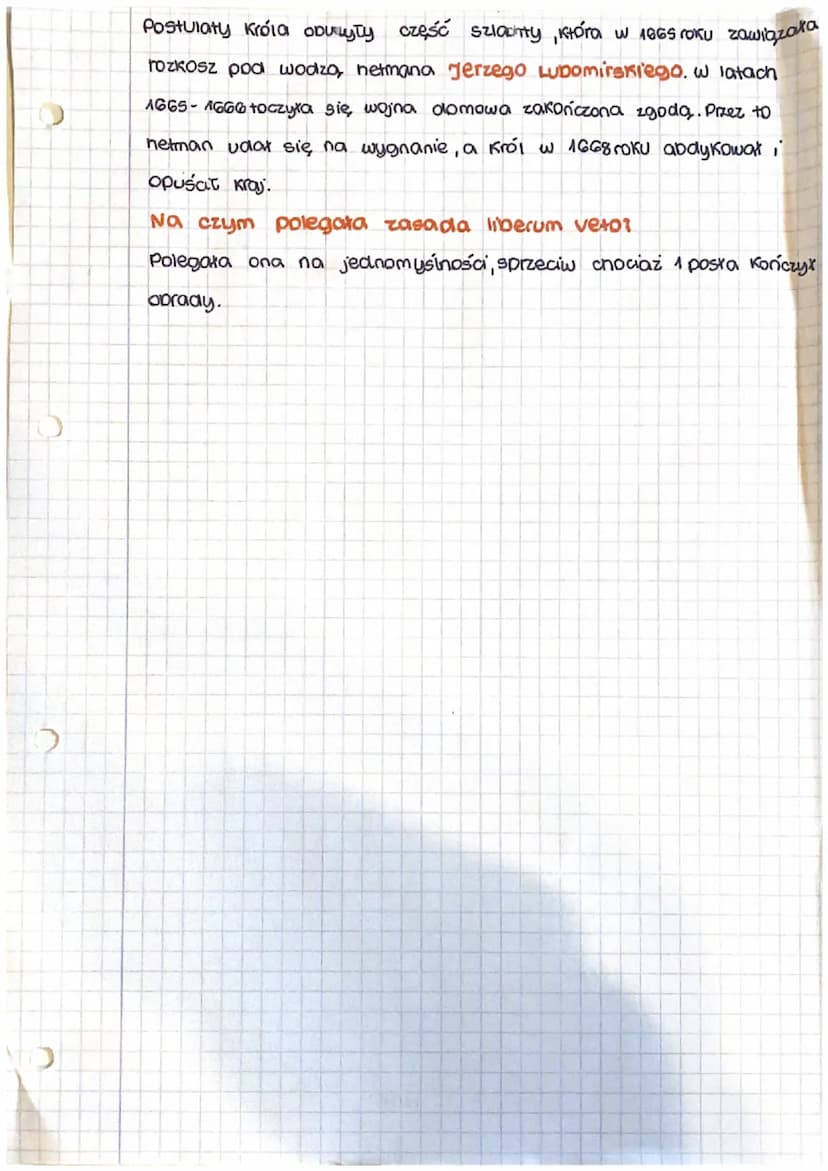 Postulaty króla oburzyły część szlachty, która w 1665 roku zawiązała
rozkosz pod wodzą hetmana Jerzego Lubomirskiego. W latach
1665-1666 toczyła się wojna domowa zakończona zgodą. Przez to
hetman udał się na wygnanie, a król w 1668 roku abdykował i
opuścił kraj.
Na czym polegała zasada liberum veto?
Polegała ona na jednomyślności, sprzeciw chociaż 1 posła kończył
obrady.